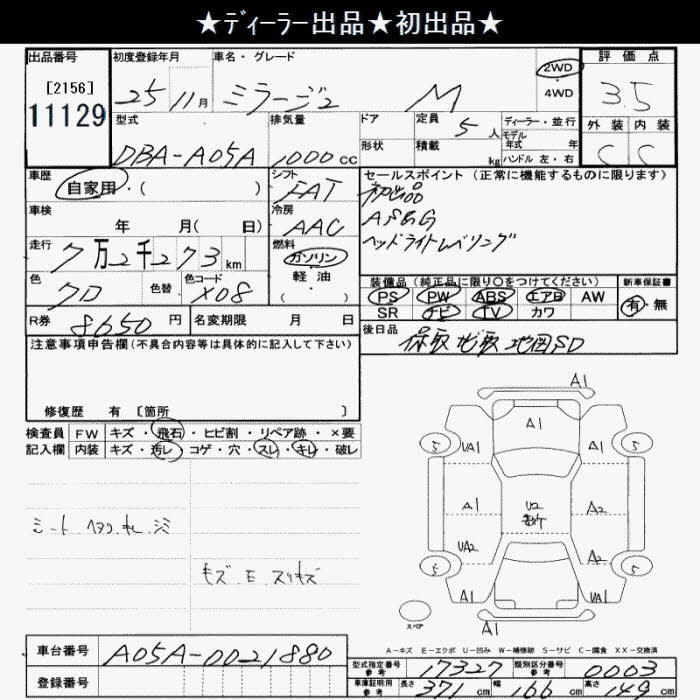 ★ディーラー出品★初出品★
出品番号 初度登録年月 車名・グレード 評価点
[2156] 25 11月 ミラージュ M 2WD 3.5
11129 4WD
型式 排気量 ドア 定員 5人 ディーラー・並行 外装 内装
モデル年式 年
DBA-A05A 1000cc 形状 積載 kg ハンドル 左・右 C C
車歴 シフト セールスポイント (正常に機能するものに限ります)
自家用・( ) FAT 初出品
車検 冷房 AS&G
年 月( 日) AAC ヘッドライトレベリング
走行 燃料
7万2千273km ガソリン
色 色替 色コード 軽油 装備品 (純正品に限り〇をつけてください) 新車保証書
クロ X08 (・) PS PW ABS エアB AW 有・無
SR ナビ TV カワ
R券 8650円 名変期限 月 日 後日品
保取 ナビ取 地図SD
注意事項申告欄(不具合内容等は具体的に記入して下さい)
修復歴 有 [箇所 ]
検査員 FW キズ・飛石・ヒビ割・リペア跡・×要
記入欄 内装 キズ・汚レ・コゲ・穴・スレ・キレ・破レ
A1
A1
5 UA1 VA1 5
A1 U2 A2
UA2 A2
5 5
A1 UA1
スペア A1
キズ.E スリキズ
A-キズ E-エクボ U-凹み W-補修跡 S-サビ C-腐食 XX-交換済
車台番号 A05A-0021880
登録番号
型式指定番号 参考 17327 類別区分番号 参考 0003
車庫証明用 参考 長さ 371cm 幅 166cm 高さ 149cm